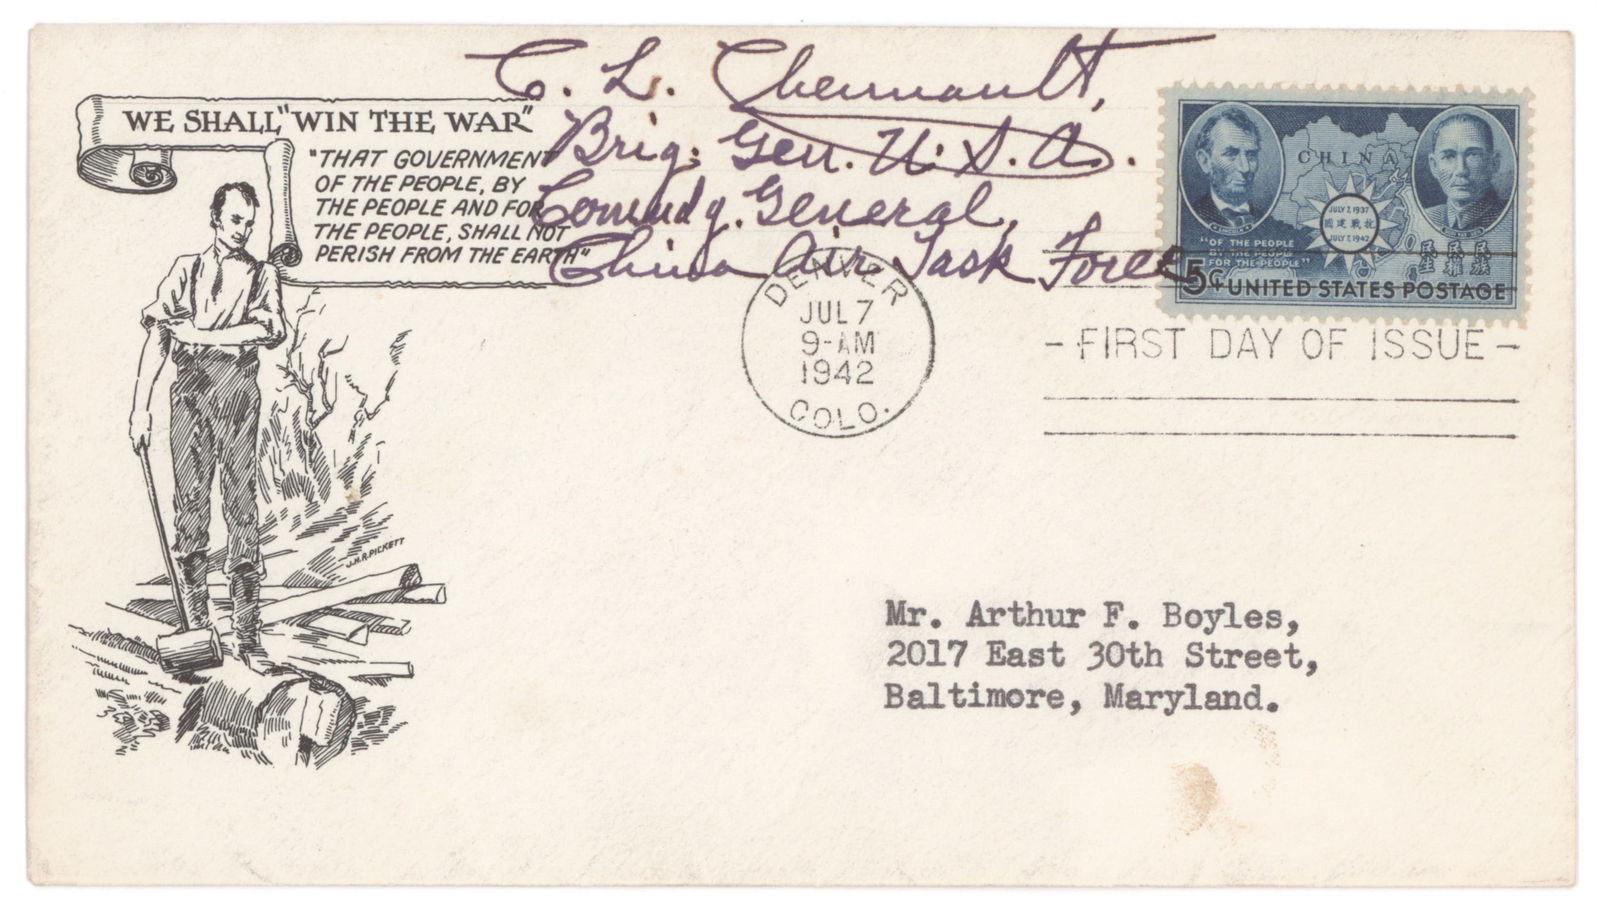 C. L. Chennault,
Brig. Gen. U.S.A.
Comndg. General,
China Air Task Force
WE SHALL "WIN THE WAR"
"THAT GOVERNMENT
OF THE PEOPLE, BY
THE PEOPLE AND FOR
THE PEOPLE, SHALL NOT
PERISH FROM THE EARTH"
J.H.R. PICKETT
DENVER
JUL 7
9-AM
1942
COLO.
CHINA
LINCOLN
JULY 7, 1937
國建戰抗
JULY 7, 1942
"OF THE PEOPLE
BY THE PEOPLE
FOR THE PEOPLE"
民民民
生權族
5¢ UNITED STATES POSTAGE
- FIRST DAY OF ISSUE -
Mr. Arthur F. Boyles,
2017 East 30th Street,
Baltimore, Maryland.